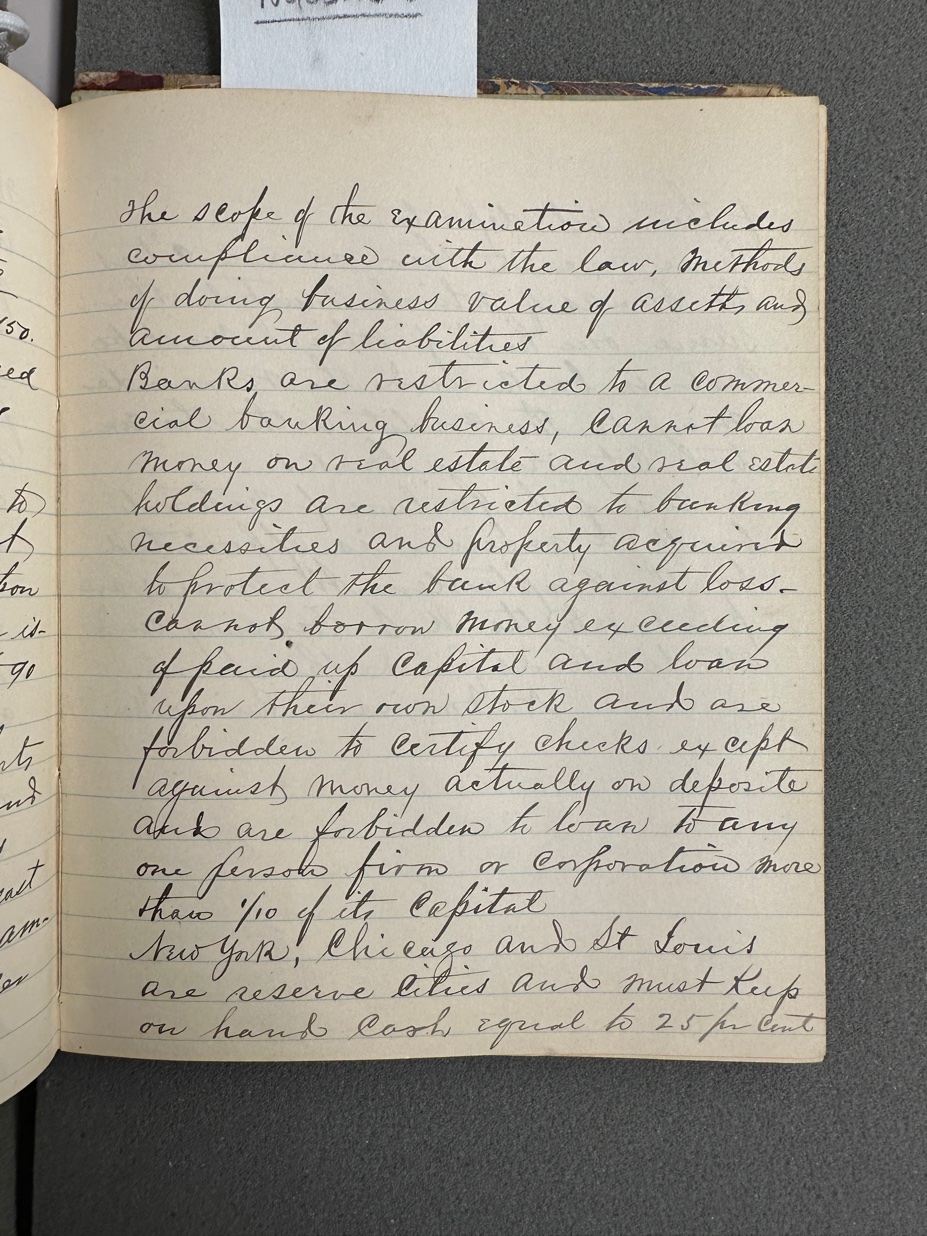 150.
ed
to
t
is-
go
nts
and
east
am-
er
The scope of the examination includes
compliance with the law, methods
of doing business value of assetts and
amount of liabilities
Banks are restricted to a commer-
cial banking business, cannot loan
money on real estate and real estate
holdings are restricted to banking
necessities and property acquired
to protect the bank against loss-
cannot borrow money exceeding
of paid up capital and loan
upon their own stock and are
forbidden to certify checks except
against money actually on deposite
and are forbidden to loan to any
one person firm or corporation more
than 1/10 of its capital
New York, Chicago and St Louis
are reserve cities and must keep
on hand cash equal to 25 per cent